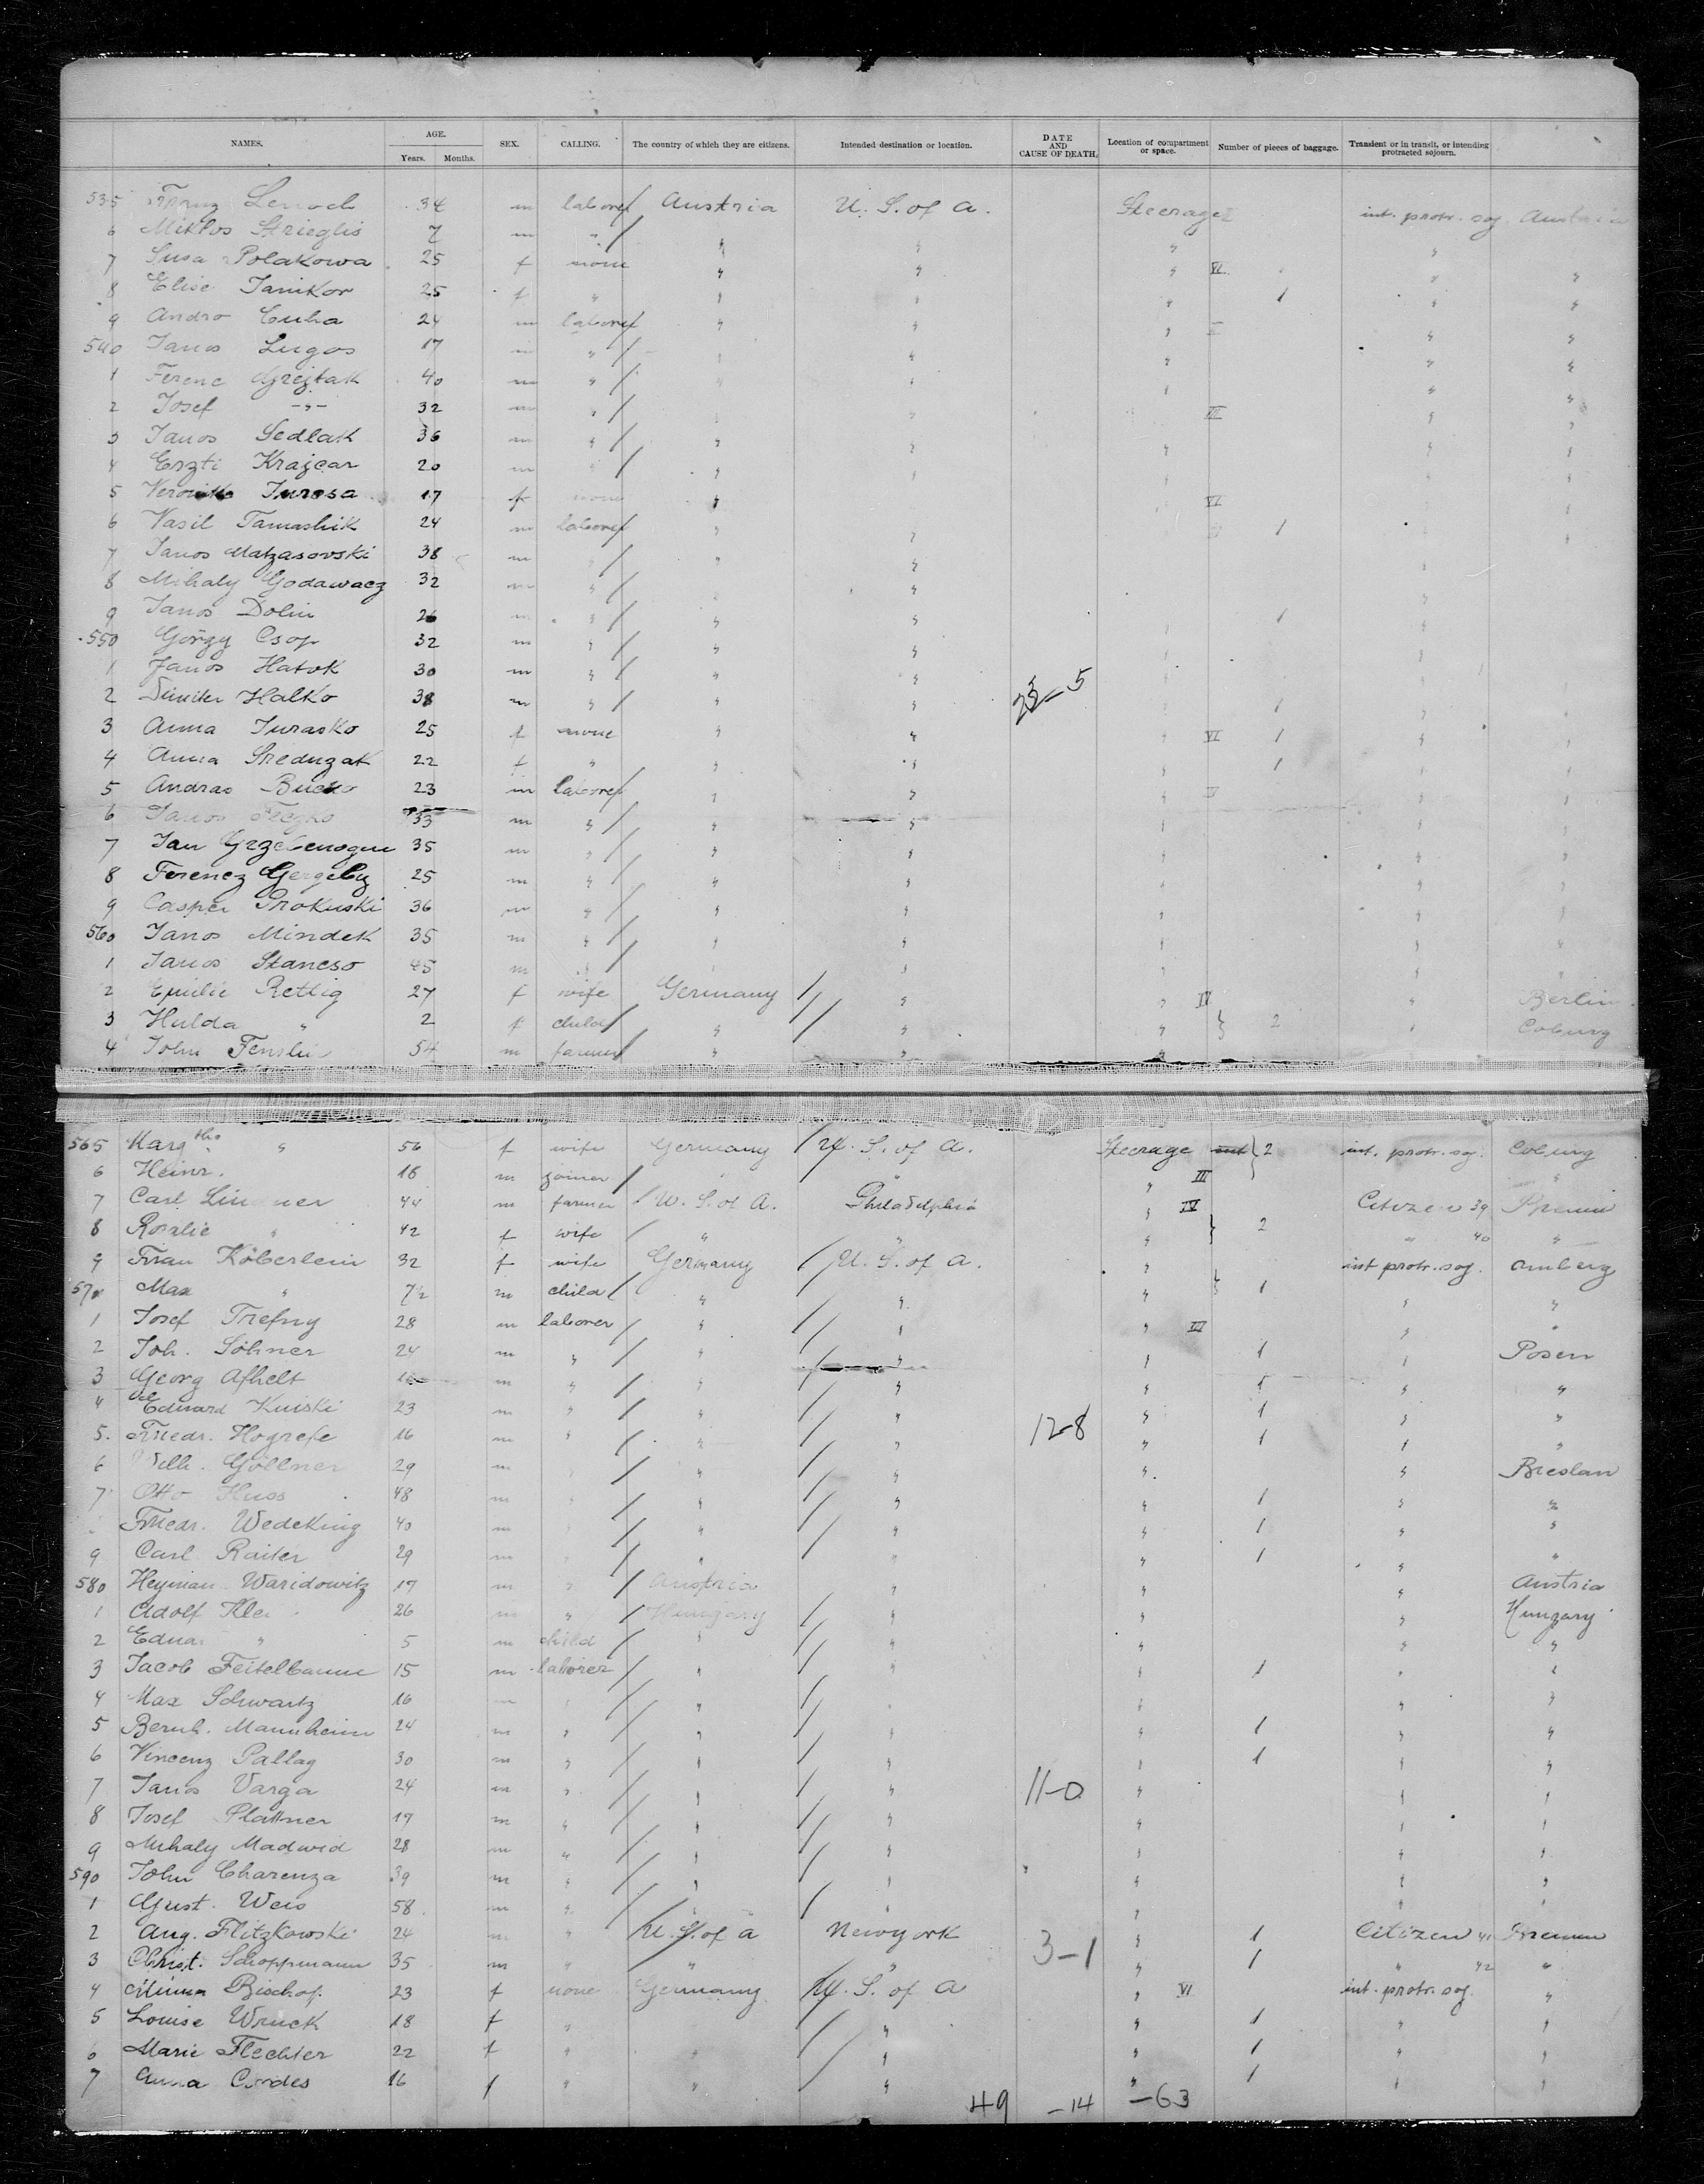 NAMES. AGE. SEX. CALLING. The country of which they are citizens. Intended destination or location. DATE AND CAUSE OF DEATH. Location of compartment or space. Number of pieces of baggage. Transient or in transit, or intending protracted sojourn.
Years. Months.
535 Franz Lenoch 34 m laborer Austria U. S. of A. Steerage int. protr. soj. Austria
6 Miklos Strieglis 7 m " " " " " "
7 Susa Polakowa 25 f none " " " VI " "
8 Elise Janikor 25 f " " " " 1 " "
9 Andro Cuha 24 m laborer " " " " "
540 Janos Lugos 17 m " " " " " "
1 Ferenc Grejtak 40 m " " " " " "
2 Josef -"- 32 m " " " " "
3 Janos Sedlak 36 m " " " " " "
4 Erzti Krajcar 20 m " " " " " "
5 Veronika Jurosa 17 f none " VI "
6 Vasil Tamashik 24 m laborer " " 1 "
7 Janos Matzasovski 38 m " " "
8 Mihaly Godawacz 32 m " " " "
9 Janos Dolin 26 m " " " 1 "
550 Görgy Csop 32 m " " " " "
1 Janos Hatok 30 m " " " "
2 Dimiter Halko 38 m " " " 25-5 1 " "
3 Anna Jurasko 25 f none " " " VI 1 " "
4 Anna Sreduzak 22 f " " " " 1 " "
5 Andras Bucko 23 m laborer " " " " "
6 Janos Feczko 33 m " " " " " "
7 Jan Grzebenogue 35 m " " " " " "
8 Ferencz Gergely 25 m " " " " " "
9 Casper Prokuski 36 m " " " " " "
560 Janos Mindek 35 m " " " " " "
1 Janos Stancso 45 m " " " " "
2 Emilie Rettig 27 f wife Germany " " IV " Berlin
3 Hulda " 2 f child " " " 2 " Coburg
4 John Fenslin 54 m farmer " " "
565 Margthe " 56 f wife Germany U. S. of A. Steerage 2 int. protr. soj. Coburg
6 Heinr. 16 m joiner " " III "
7 Carl Lindner 44 m farmer U. S. of A. Philadelphia " IV Citizen 39 Bremen
8 Rosalie " 42 f wife " " " 2 " 40 "
9 Frau Köberlein 32 f wife Germany U. S. of A. " int protr. soj. Amberg
570 Max " 7½ m child " " " 1 " "
1 Josef Trefny 28 m laborer " " " III " "
2 Joh. Söhner 24 m " " " " 1 " Posen
3 Georg Afhelt 16 m " " " " 1 " "
4 Eduard Kuiski 23 m " " " " 1 " "
5. Friedr. Hogrefe 16 m " " " 12-8 " 1 " "
6 Wilh. Göllner 29 m " " " " Breslau
7 Otto Huss 48 m " " " 1 " "
Friedr. Wedeking 40 m " " " 1 " "
9 Carl Raiter 29 m " " " 1 " "
580 Heyman Waridowitz 17 m " Austria " " " Austria
1 Adolf Klei 26 m " Hungary " " " Hungary
2 Edua " 5 m child " " " " "
3 Jacob Feitelbaum 15 m laborer " " " 1 " "
4 Max Schwartz 16 " " " " "
5 Bernh. Mannheim 24 m " " " " 1 " "
6 Vincenz Pallag 30 m " " " " 1 " "
7 Janos Varga 24 m " " " 11-0 " " "
8 Josef Plattner 17 m " " " " " "
9 Mihaly Madwid 28 m " " " " " "
590 John Charenza 39 m " " " " " "
1 Gust. Weis 58 m " " " " " "
2 Aug. Flitzkowski 24 m " U. S. of A New york " 1 Citizen 41 Bremen
3 Christ. Schoppmann 35 m " " " 3-1 " 1 " 42 "
4 Minna Bischof. 23 f none Germany U. S. of A " VI int. protr. soj. "
5 Louise Wruck 18 f " " " 1 " "
6 Marie Flechter 22 f " " " " 1 " "
7 Anna Cordes 16 f " " " " 1 " "
49 -14 -63